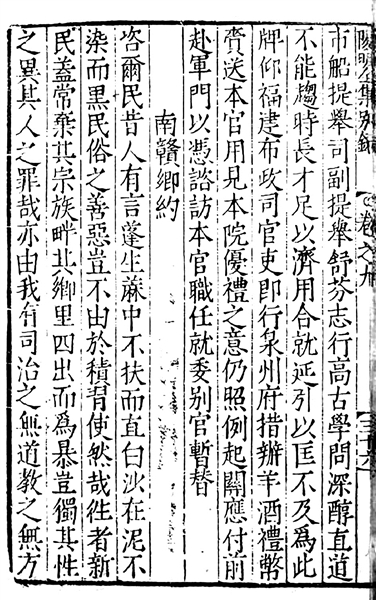 陽明全集別錄
卷之九
三十六
市舶提舉司副提舉舒芬志行高古學問深醇直道
不能趨時長才足以濟用合就延引以匡不及爲此
牌仰福建布政司官吏即行泉州府措辦羊酒禮幣
賫送本官用見本院優禮之意仍照例起關應付前
赴軍門以憑諮訪本官職任就委别官暫替
南贛鄉約
咨爾民昔人有言蓬生蔴中不扶而直白沙在泥不
染而黑民俗之善惡豈不由於積習使然哉徃者新
民蓋常棄其宗族畔其鄉里四出而爲暴豈獨其性
之異其人之罪哉亦由我有司治之無道教之無方